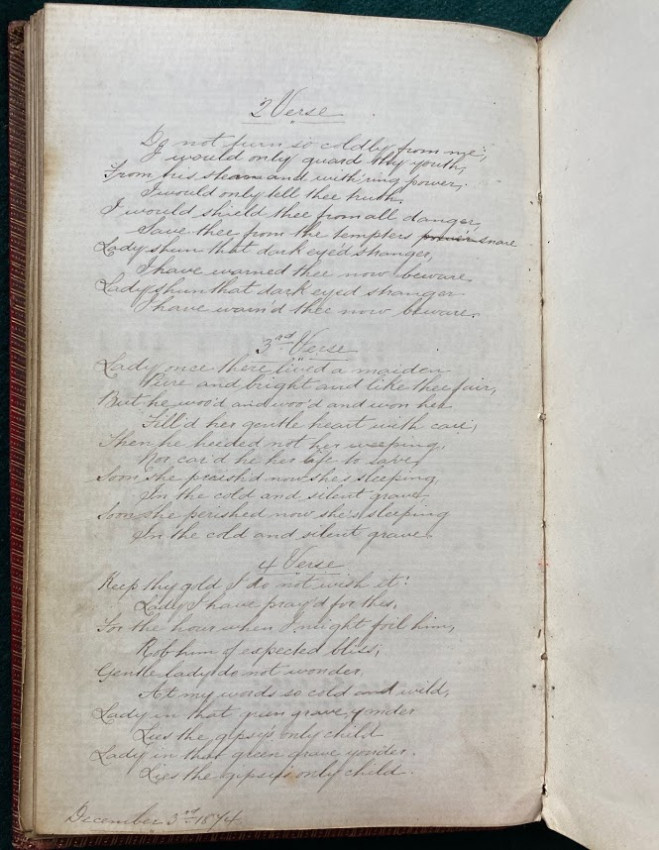 2 Verse
Do not turn so coldly from me;
I would only guard thy youth,
From his stern and with'ring power.
I would only tell thee truth.
I would shield thee from all danger,
Save thee from the tempters snare
Lady shun that dark eye'd stranger,
I have warned thee now beware.
Lady shun that dark eyed stranger
I have warn'd thee now beware.
3rd Verse
Lady once there lived a maiden
Pure and bright and like thee fair,
But he woo'd and woo'd and won her
Fill'd her gentle heart with care,
Then he heeded not her weeping,
Nor car'd he her life to save,
Soon she perish'd now she's sleeping,
In the cold and silent grave
Soon she perished now she's sleeping
In the cold and silent grave.
4 Verse
Keep thy gold I do not wish it:
Lady I have pray'd for this,
For the hour when I might foil him,
Rob him of expected bliss,
Gentle lady do not wonder,
At my words so cold and wild,
Lady in that green grave yonder
Lies the gipsy's only child
Lady in that green grave yonder.
Lies the gipsy's only child.
December 3rd 1874.